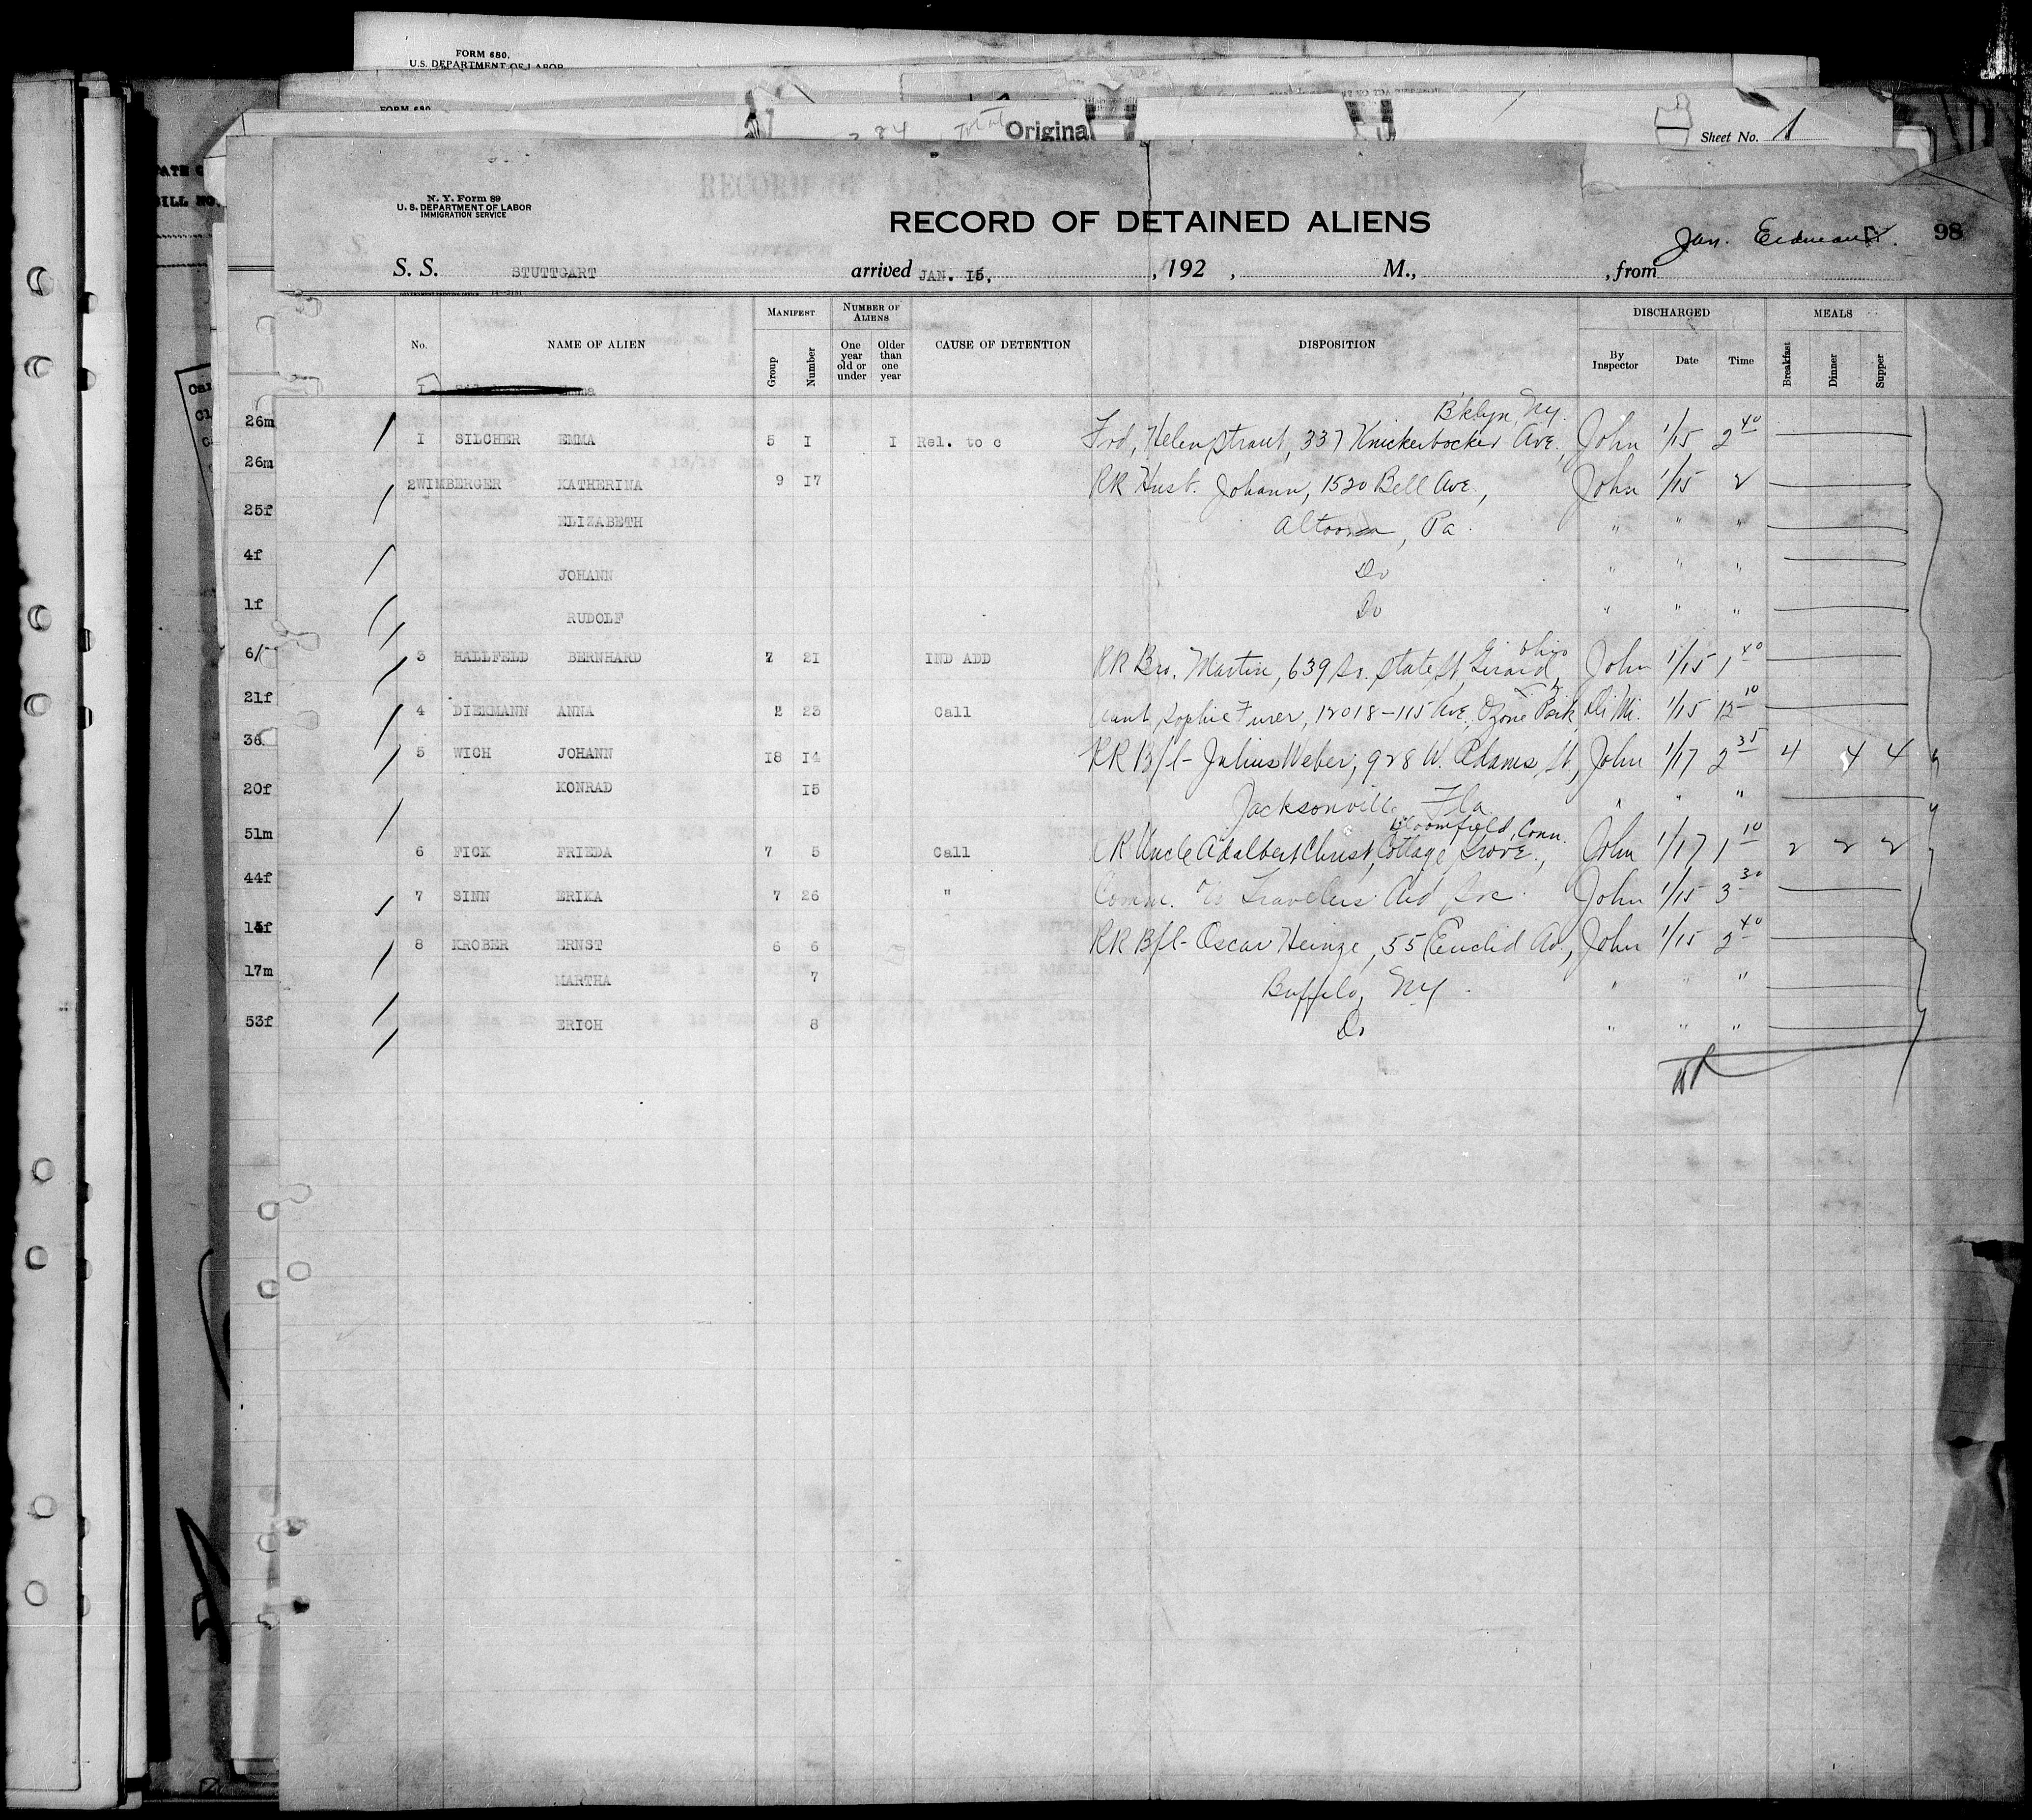 FORM 680.
U.S. DEPARTMENT OF LABOR
FORM 680
284 Total Original
Sheet No. 1
N. Y. Form 89
U. S. DEPARTMENT OF LABOR
IMMIGRATION SERVICE
RECORD OF DETAINED ALIENS
Jan. 98
S. S. STUTTGART arrived JAN. 15, , 192 , M., , from
MANIFEST NUMBER OF ALIENS DISCHARGED MEALS
No. NAME OF ALIEN Group Number One year old or under Older than one year CAUSE OF DETENTION DISPOSITION By Inspector Date Time Breakfast Dinner Supper
B'klyn, NY.
26m I SILCHER EMMA 5 I I Rel. to c Frd, Helen Straut, 337 Knickerbocker Ave., John 1/15 2 40
26m 2 WIMBERGER KATHERINA 9 17 RR Husb. Johann, 1520 Bell Ave., John 1/15 2
25f ELIZABETH Altoona, Pa. " " "
4f JOHANN Do " " "
1f RUDOLF Do " " "
Ohio
6/ 3 HALLFELD BERNHARD 7 21 IND ADD RR Bro. Martin, 639 So. State St, Girard, John 1/15 1 40
21f 4 DIEKMANN ANNA 2 23 Call Aunt, Sophie Furer, 12018-115 Ave, Ozone Park, 1/15 12 10
36 5 WICH JOHANN 18 14 RR B/l- Julius Weber, 928 W. Adams St., John 1/17 2 35 4 4 4
20f KONRAD 15 Jacksonville, Fla. " " "
Bloomfield, Conn.
51m 6 FICK FRIEDA 7 5 Call RR Uncle Adalbert Christ, Cottage Grove, John 1/17 1 10 2 2 2
44f 7 SINN ERIKA 7 26 " Comm. to Travelers Aid Soc. John 1/15 3 30
8 KROBER ERNST 6 6 RR B/l- Oscar Heinze, 55 Euclid Av., John 1/15 2 40
17m MARTHA 7 Buffalo, NY. " " "
53f ERICH 8 Do " " "